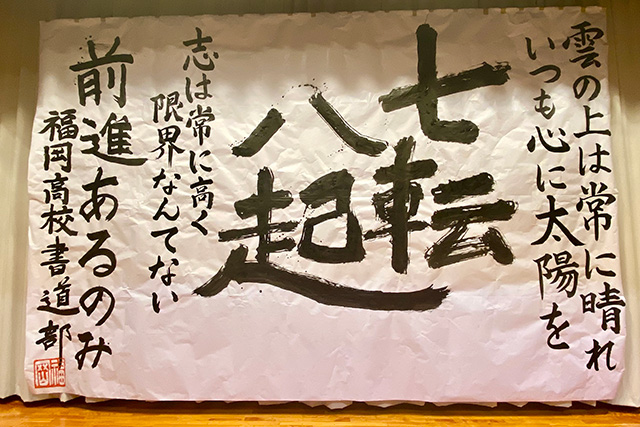 雲の上は常に晴れ
いつも心に太陽を
七転
八起
志は常に高く
限界なんてない
前進あるのみ
福岡高校書道部
福高